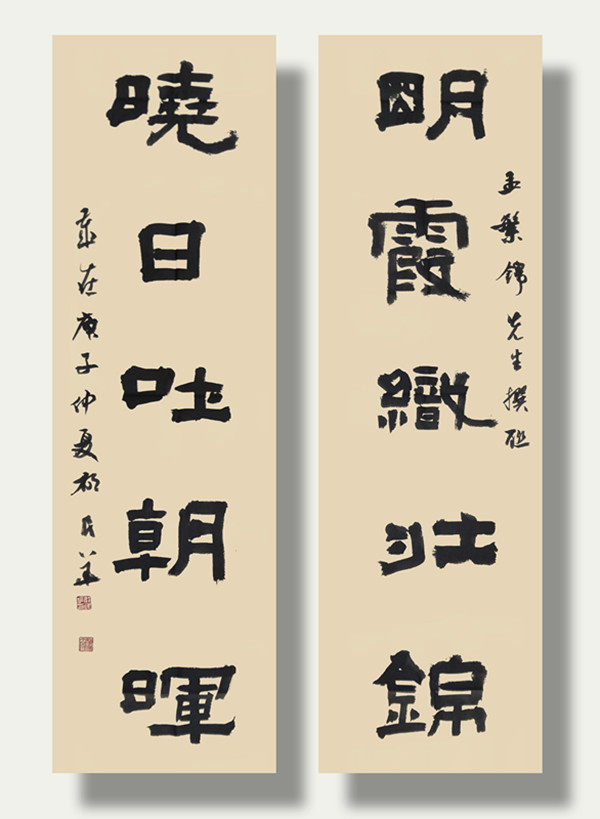 王繁錦先生撰联
明霞織壯錦
曉日吐朝暉
歲在庚子仲夏